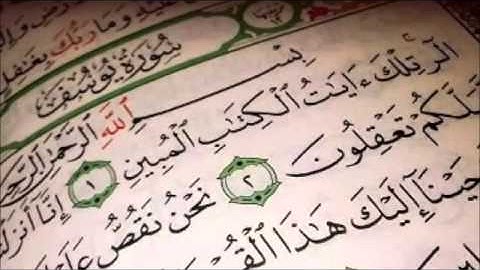 عَلَيْهِ وَمَا رَبُّكَ بِغَٰفِلٍ
سُورَةُ يُوسُفَ
بِسْمِ ٱللَّهِ ٱلرَّحْمَٰنِ ٱلرَّحِي
الٓر تِلْكَ ءَايَٰتُ ٱلْكِتَٰبِ ٱلْمُبِينِ ١ إِنَّآ أَنزَلْ
لَّكُمْ تَعْقِلُونَ ٢ نَحْنُ نَقُصُّ عَ
حَيْنَآ إِلَيْكَ هَٰذَا ٱلْقُرْ